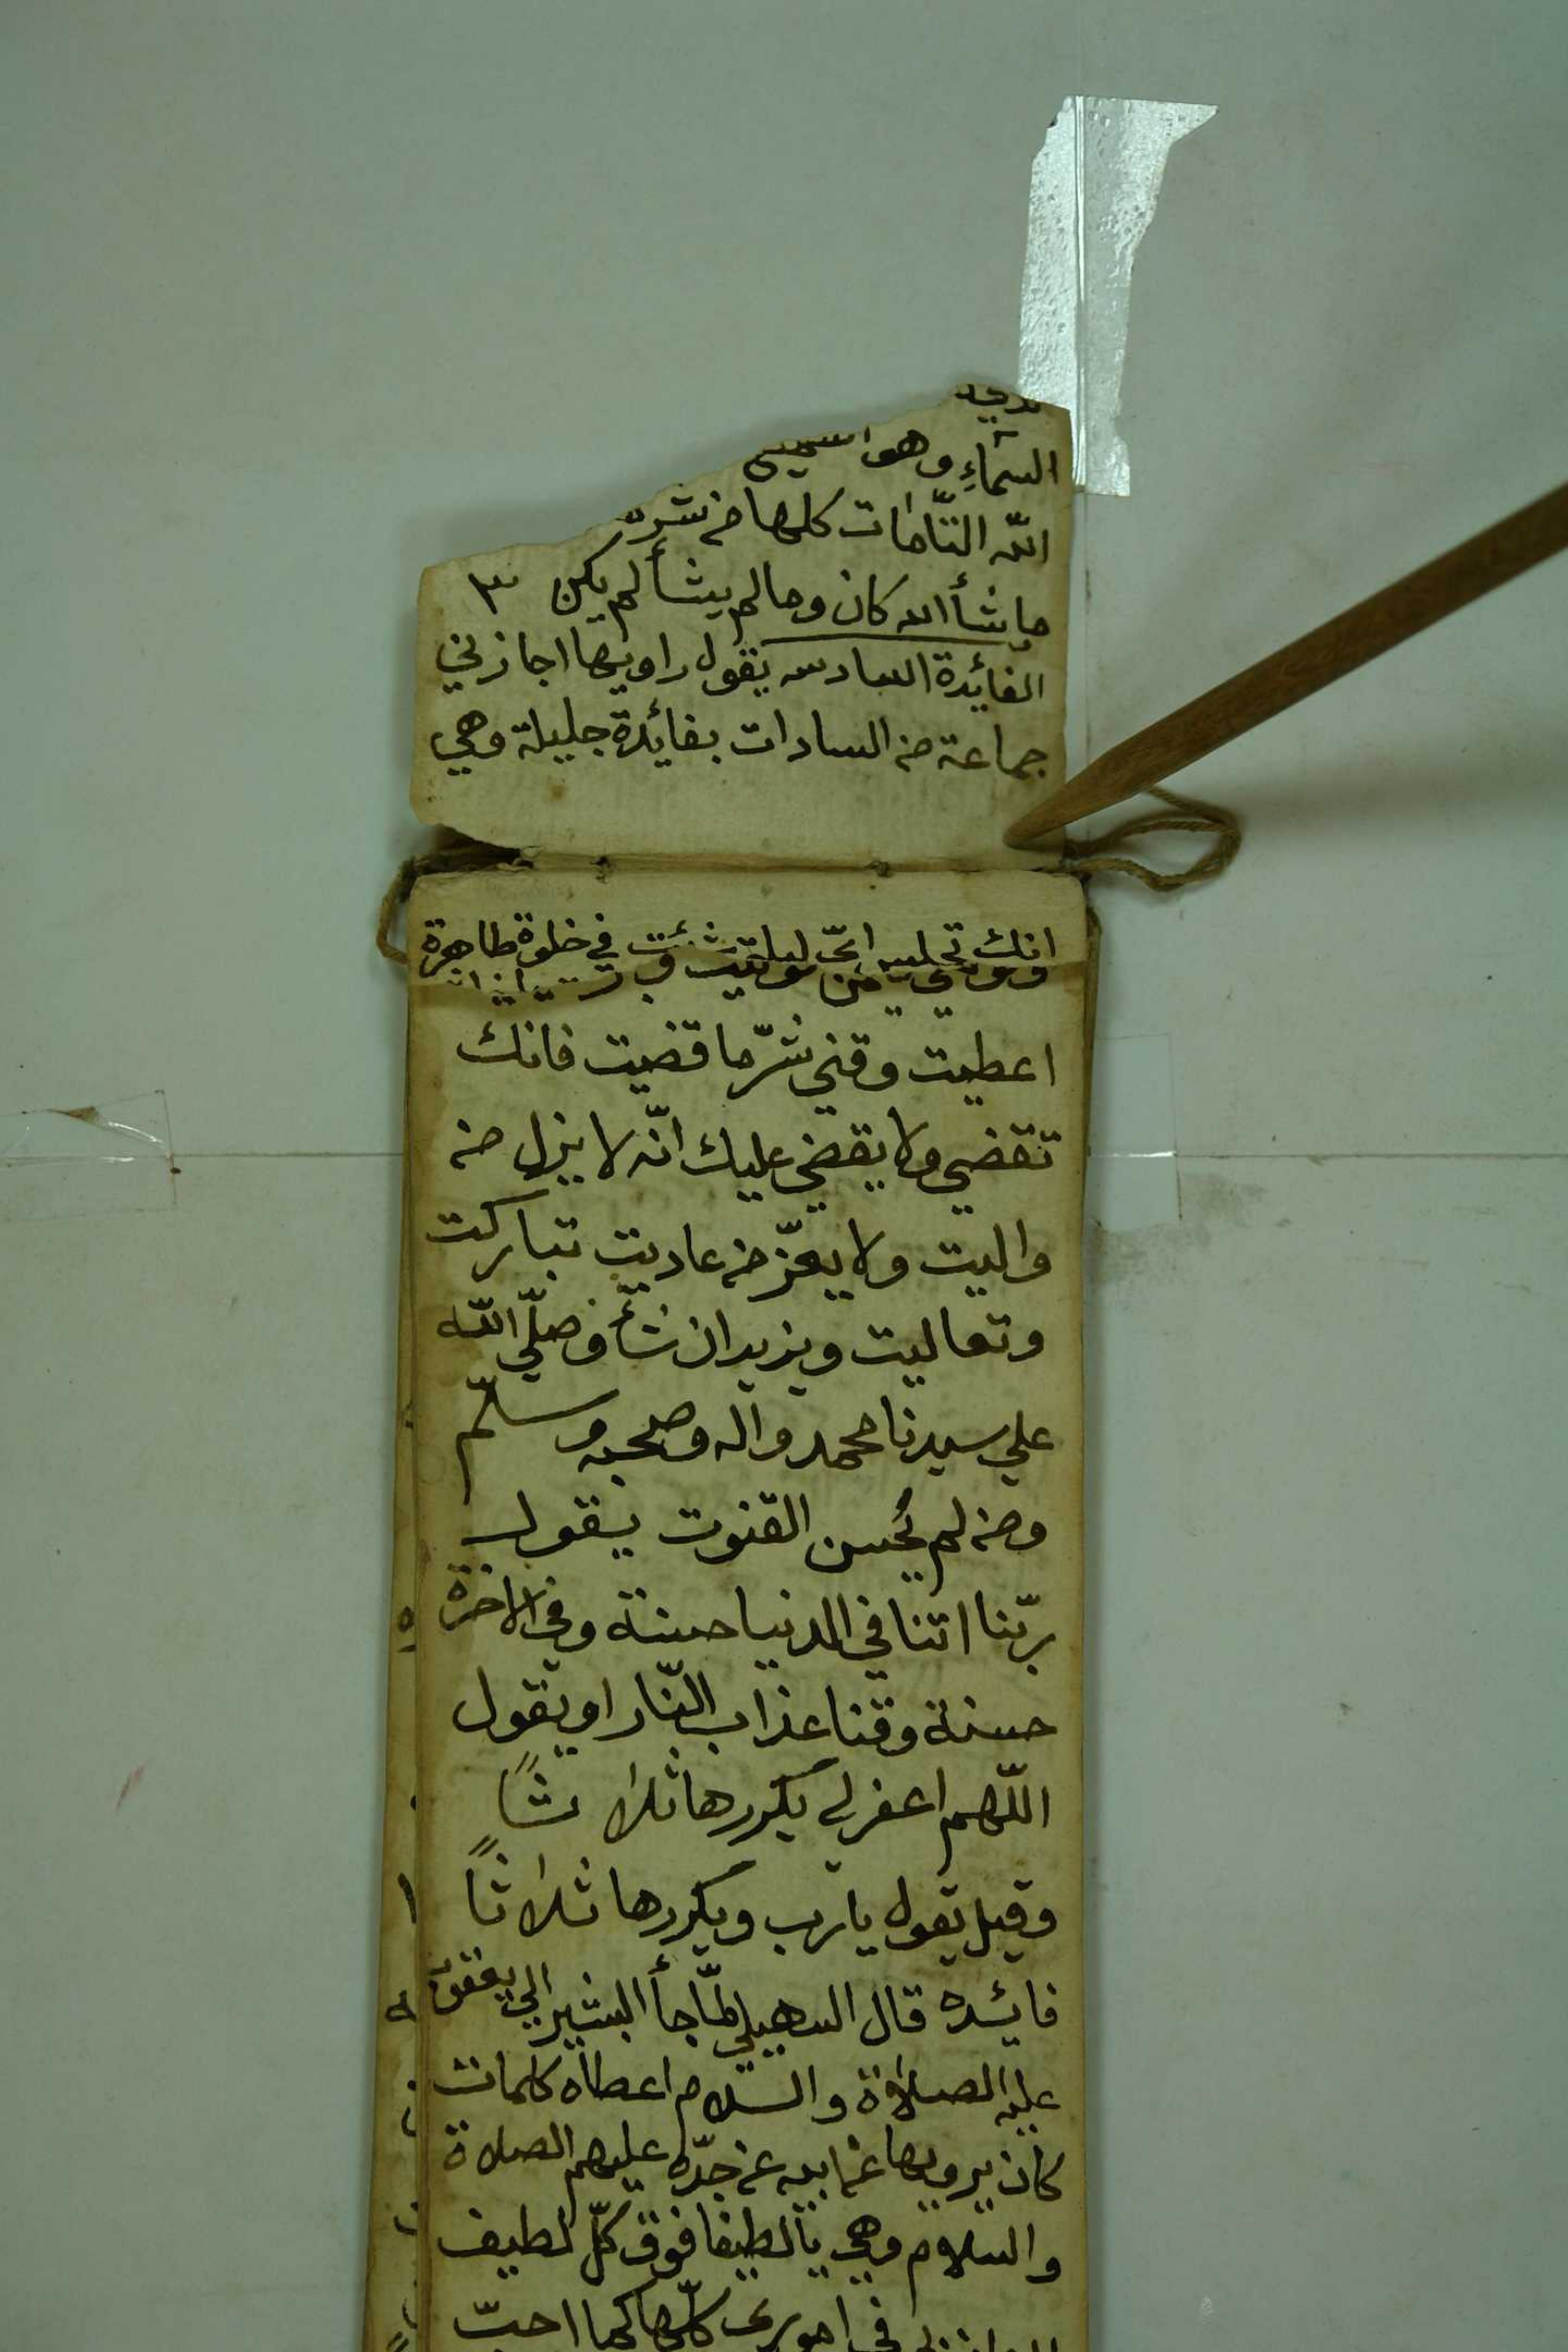 السمآءِ وهو السميع
الله التّامات كلها من شر
ما شأ الله كان وما لم يشأ لم يكن ٣
الفائدة السادسه يقول راويها اجازني
جماعة من السادات بفائدة جليلة وهي
انك تجلس ايّ ليلة شئت في خلوة طاهرة
اعطيت وقني شرّ ما قضيت فانك
تقضي ولا يقضي عليك انّه لا يذل من
واليت ولا يعزّ من عاديت تباركت
وتعاليت ويزيد ان شأ وصلّي الله
علي سيدنا محمد واله وصحبه وسلّم
ومن لم يُحسن القنوت يقول
ربّنا اتنا في الدنيا حسنة وفي الاخرة
حسنة وقنا عذاب النّار او يقول
اللّهم اغفر لي يكررها ثلاثًا
وقيل يقول يا رب ويكررها ثلاثًا
فائده قال السهيلي لمّا جأ البشير الي يعقوب
عليه الصلاة والسلام اعطاه كلمات
كان يرويها عن ابيه عن جدّه عليهم الصلاة
والسلام وهي يا لطيفا فوق كلّ لطيف
في اموري كلّها كما احبّ